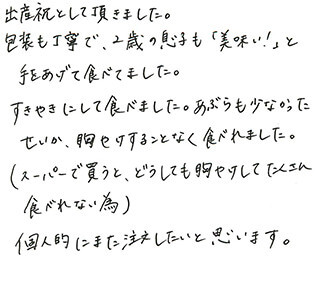 出産祝として頂きました。
包装も丁寧で、2歳の息子も「美味い!」と
手をあげて食べてました。
すきやきにして食べました。あぶらも少なかった
せいか、胸やけすることなく食べれました。
(スーパーで買うと、どうしても胸やけしてたくさん
食べれない為)
個人的にまた注文したいと思います。